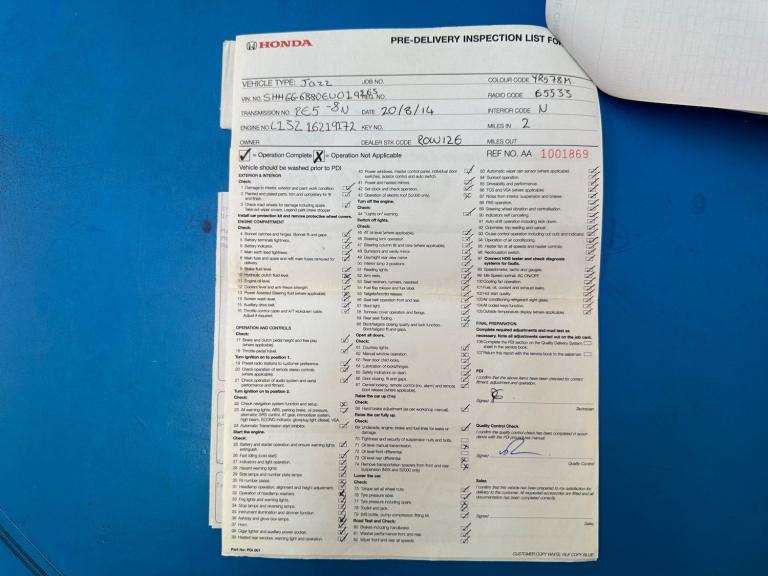 HONDA
PRE-DELIVERY INSPECTION LIST FO
VEHICLE TYPE: Jazz JOB NO. COLOUR CODE YR578M
VIN. NO. RADIO CODE 65533
TRANSMISSION NO. DATE 20/8/14 INTERIOR CODE N
ENGINE NO. KEY NO. MILES IN 2
OWNER DEALER STK CODE ROW126 MILES OUT
= Operation Complete = Operation Not Applicable REF NO. AA 1001869
Vehicle should be washed prior to PDI
EXTERIOR & INTERIOR
Check:
1 Damage to interior, exterior and paint work condition.
2 Painted and plated parts, trim and upholstery for fit
and finish.
3 Check road wheels for damage including spare.
Install car protection kit and remove protective wheel covers.
ENGINE COMPARTMENT
Check:
4 Bonnet catches and hinges. Bonnet fit and gaps.
5 Battery terminals tightness.
6 Battery indicator.
7 Main earth lead tightness.
9 Brake fluid level
10 Hydraulic clutch fluid level
11 Engine oil level
12 Coolant level and anti-freeze strength
13 Power Assisted Steering fluid (where applicable)
14 Screen wash level.
15 Auxiliary drive belt
OPERATION AND CONTROLS
Check:
17 Brake and clutch pedal height and free play
(where applicable).
18 Throttle pedal travel.
Turn ignition on to position 1.
19 Preset radio stations to customer preference.
20 Check operation of remote stereo controls
(where applicable).
21 Check operation of audio system and aerial
performance and fitment.
Turn ignition on to position 2.
22 Check navigation system function and setup.
24 Automatic Transmission start inhibitor.
Start the engine.
25 Battery and starter operation and ensure warning lights
extinguish
26 Fast idling (cold start)
27 Indicators and light operation.
28 Hazard warning lights.
29 Side lamps and number plate lamps
31 Headlamp operation, alignment and height adjustment.
32 Operation of headlamp washers.
33 Fog lights and warning lights.
34 Stop lamps and reversing lamps.
35 Instrument illumination and dimmer function
36 Ashtray and glove box lamps
37 Horn.
38 Cigar lighter and auxiliary power socket.
39 Heated rear window, warning light and operation.
40 Power windows, master control panel, individual door
switches, sunroof control and auto switch.
41 Power and heated mirrors.
42 Set clock and check operation.
43 Operation of electric roof (S2000 only)
Turn off the engine.
Check:
44 "Lights on" warning.
Switch off lights.
Check:
46 Steering lock operation.
47 Steering column tilt and rake (where applicable)
48 Sunvisors and vanity mirrors
49 Day/night rear view mirror
51 Reading lights
52 Arm rests
53 Seat recliners, runners, headrest
54 Fuel flap release and fuel label.
55 Tailgate/boot/lid release
56 Seat belt operation front and rear
57 Boot light.
58 Tonneau cover operation and fixings.
59 Rear seat folding.
60 Boot/tailgate closing quality and lock function.
Boot/tailgate fit and gaps.
Open all doors.
Check:
61 Courtesy lights
62 Manual window operation.
63 Rear door child locks.
64 Lubrication of locks/hinges.
65 Safety indicators on doors
66 Door closing, fit and gaps.
Raise the car up (1m)
Check:
68 Hand brake adjustment (as per workshop manual).
Raise the car fully up.
Check:
69 Underside, engine, brake and fuel lines for leaks or
damage.
70 Tightness and security of suspension nuts and bolts.
71 Oil level manual transmission.
72 Oil level front differential.
73 Oil level rear differential
74 Remove transportation spacers from front and rear
suspension (NSX and S2000 only)
Lower the car.
Check:
75 Torque set all wheel nuts.
76 Tyre pressure label.
77 Tyre pressure including spare.
78 Toolkit and jack.
Road Test and Check:
80 Brakes including handbrake.
81 Washer performance front and rear.
82 Wiper front and rear all speeds.
83 Automatic wiper rain sensor (where applicable)
84 Sunroof operation.
85 Driveability and performance
86 TCS and VSA (where applicable)
89 Steering wheel vibration and centralisation.
90 Indicators self cancelling.
92 Odometer, trip reading and cancel.
94 Operation of air conditioning.
95 Heater fan at all speeds and heater controls.
96 Recirculation switch.
97 Connect HDS tester and check diagnosis
systems for faults.
98 Speedometer, tacho and gauges
100 Cooling fan operation.
101 Fuel, oil, coolant and exhaust leaks.
102 Hot start quality.
103 Air conditioning refrigerant sight glass.
105 Outside temperature display (where applicable)
FINAL PREPARATION
Complete required adjustments and road test as
necessary. Note all adjustments carried out on the job card.
106 Complete the PDI section on the Quality Delivery System
sheet in the service book.
107 Return this report with the service book to the salesman.
PDI
I confirm that the above items have been checked for correct
fitment, adjustment and operation.
Signed
Technician
Quality Control Check
I confirm the quality control check has been completed in accor-
dance with the PDI procedures manual.
Signed
Quality Control
Sales
I confirm that this vehicle has been prepared to my satisfaction for
delivery to the customer. All requested accessories are fitted and all
documentation has been completed correctly.
Signed
Sales
Part No: PDI 001
CUSTOMER COPY WHITE, FILE COPY BLUE